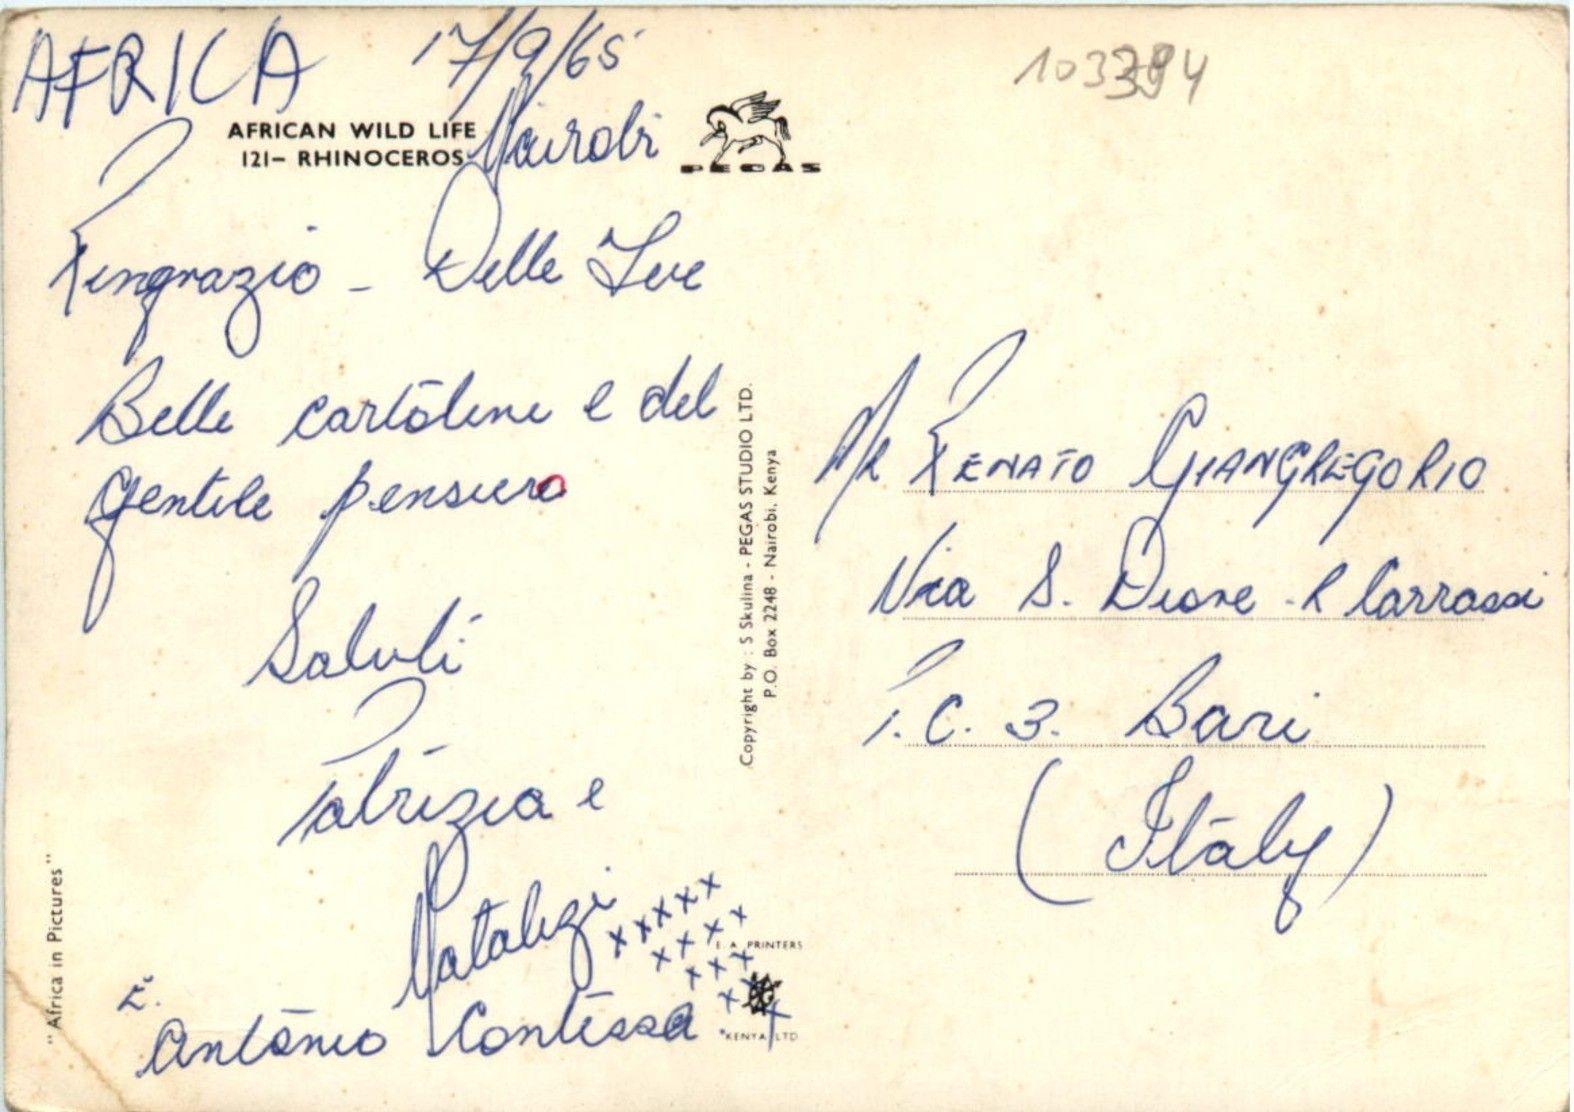 AFRICA 17/9/65
AFRICAN WILD LIFE
121- RHINOCEROS
Nairobi
PEGAS
Ringrazio - Delle Sue
Belle cartoline e del
gentile pensiero
Saluti
Patrizia e
Natalizi
x x x x x
x x x x
x x x
x x
E.
Antonio Contessa
"Africa in Pictures"
Copyright by : S Skulina - PEGAS STUDIO LTD.
P.O. Box 2248 - Nairobi, Kenya
E. A. PRINTERS
KENYA LTD
Mr RENATO GIANGREGORIO
Via S. Dione - R Carrassi
P. C. 3. Bari
(Italy)